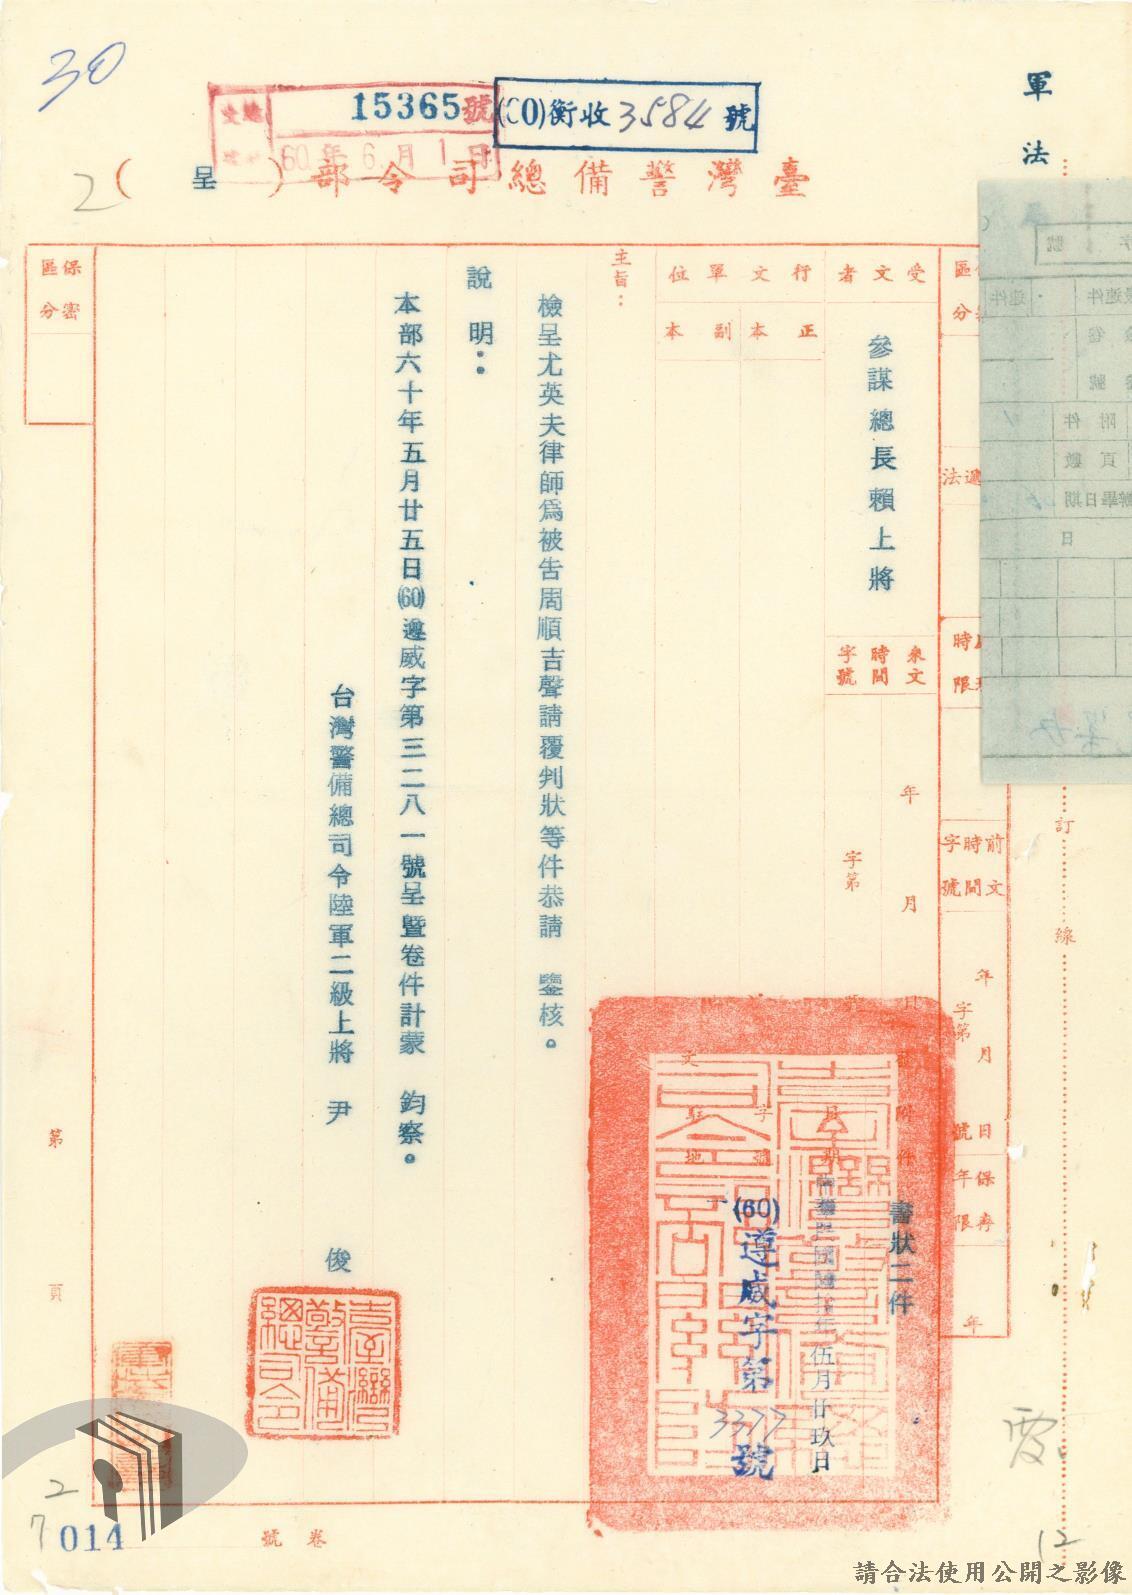 30
軍法
15365號
60年6月1日
(CO)衡收3584號
臺灣警備總司令部(呈)
2
保密區分
受文者
參謀總長賴上將
來文時間字號
年 月
字第
行文單位
正本
副本
前文時間字號
年 月 日
字第 號
保存年限
年
附件
書狀二件
中華民國陸拾年伍月廿玖日
(60)遵威字第3377號
主旨：
檢呈尤英夫律師為被告周順吉聲請覆判狀等件恭請 鑒核。
說明：
本部六十年五月廿五日(60)遵威字第三二八一號呈暨卷件計蒙 鈞察。
台灣警備總司令陸軍二級上將 尹 俊
臺灣警備總司令
保密區分
訂
線
第 頁
卷號
2
7
014
12
附件
頁數
辦畢日期
日
請合法使用公開之影像